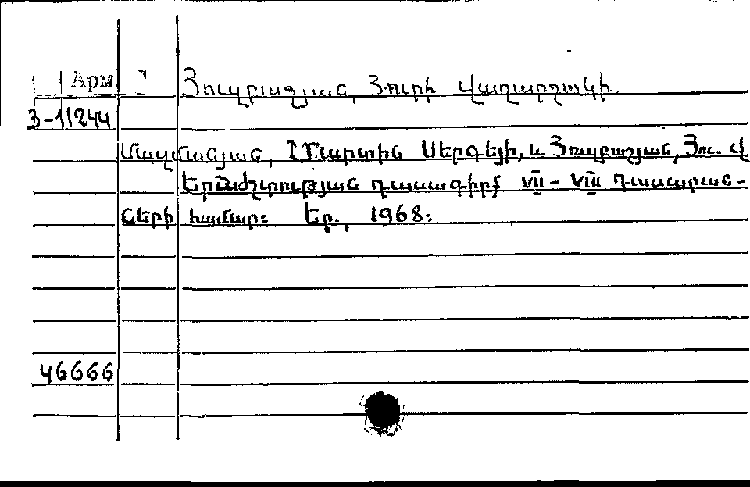 Арм Յուզբաշյան, Յուրի Վաղարշակի.
3-11244
Մազմանյան, Մարտին Սերգեյի, և Յուզբաշյան, Յու. Վ
Երաժշտության դասագիրք VII - VIII դասարան-
ների համար։ Եր., 1968։
46666